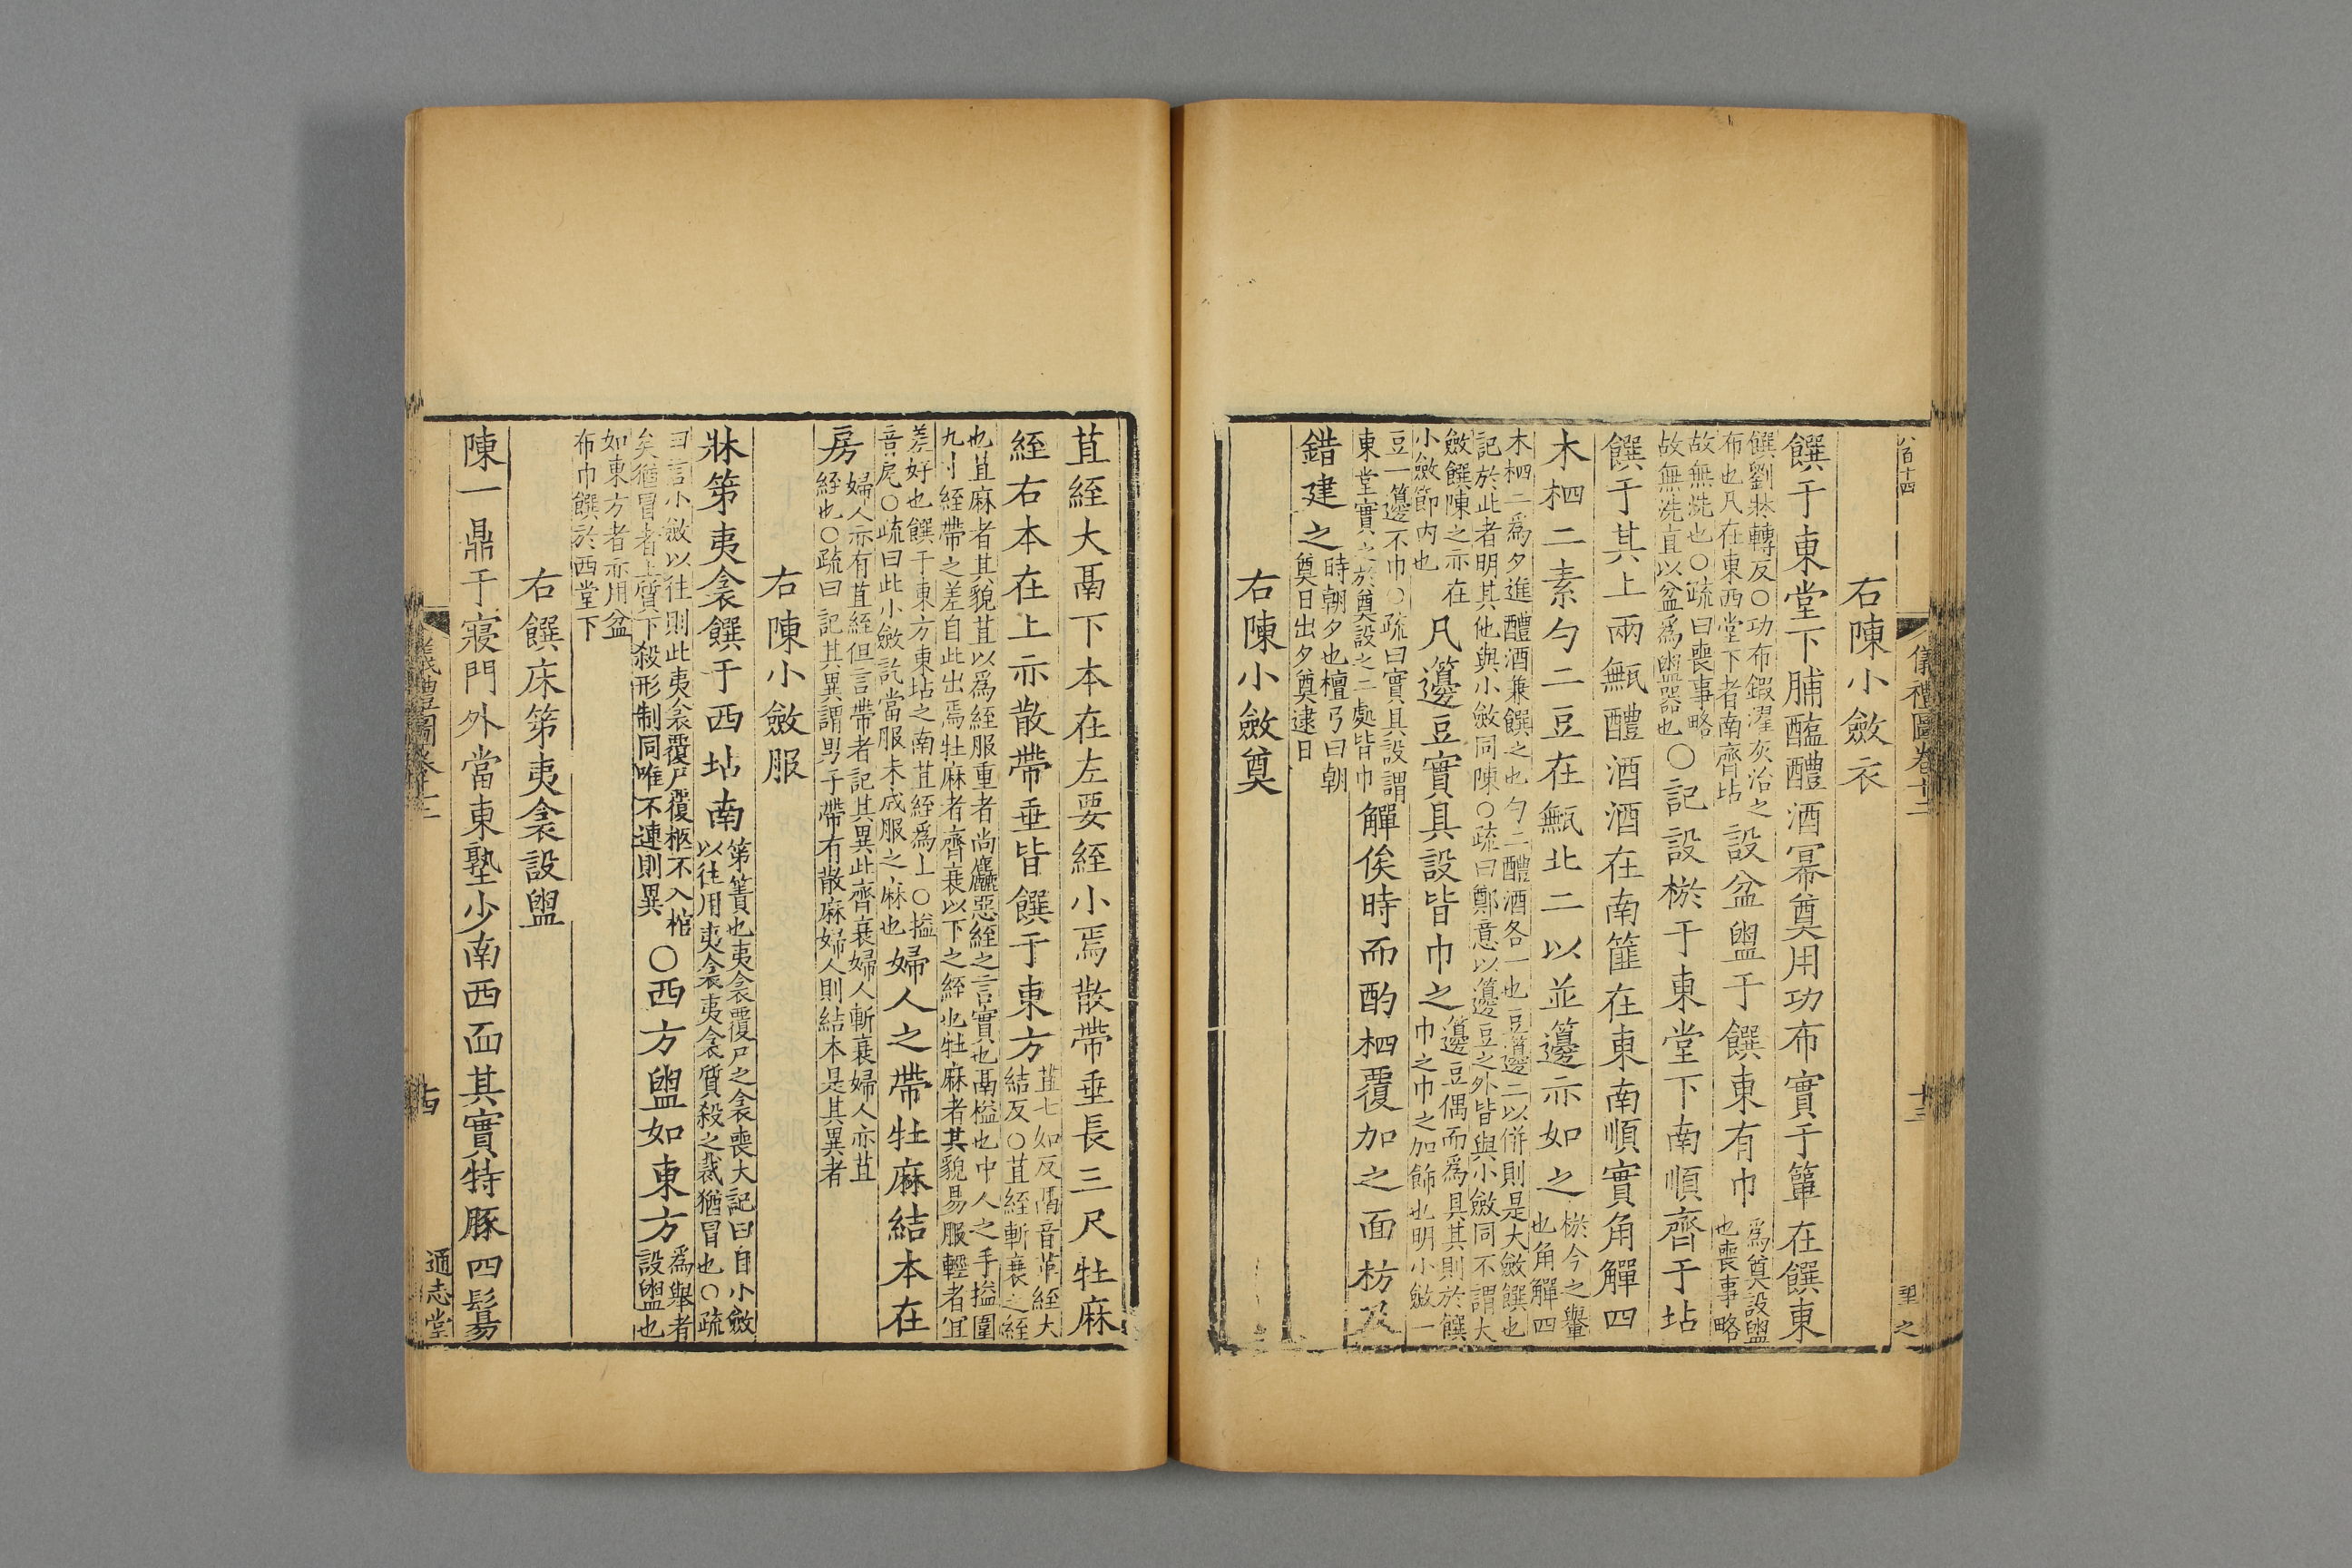 八百十四
儀禮圖卷十二
十三
聖之
右陳小斂衣
饌于東堂下脯醢醴酒冪奠用功布實于簞在饌東
饌劉牀轉反○功布鍛濯灰治之
布也凡在東西堂下者南齊坫
設盆盥于饌東有巾
為奠設盥
也喪事略
故無洗也○疏曰喪事略
故無洗直以盆為盥器也
○記設棜于東堂下南順齊于坫
饌于其上兩甒醴酒酒在南篚在東南順實角觶四
木柶二素勺二豆在甒北二以並籩亦如之
棜今之轝
也角觶四
木柶二為夕進醴酒兼饌之也勺二醴酒各一也豆籩二以併則是大斂饌也
記於此者明其他與小斂同陳○疏曰鄭意以籩豆之外皆與小斂同不謂大
斂饌陳之亦在
小斂節內也
凡籩豆實具設皆巾之
籩豆偶而為具具則於饌
巾之巾之加飾也明小斂一
豆一籩不巾○疏曰實具設謂
東堂實之於奠設之二處皆巾
觶俟時而酌柶覆加之面枋及
錯建之
時朝夕也檀弓曰朝
奠日出夕奠逮日
右陳小斂奠
苴絰大鬲下本在左要絰小焉散帶垂長三尺牡麻
絰右本在上亦散帶垂皆饌于東方
苴七如反鬲音革絰大
結反○苴絰斬衰之絰
也苴麻者其貌苴以為絰服重者尚麤惡絰之言實也鬲搤也中人之手搤圍
九寸絰帶之差自此出焉牡麻者齊衰以下之絰也牡麻者其貌易服輕者宜
差好也饌于東方東坫之南苴絰為上○搤
音厄○疏曰此小斂訖當服未成服之麻也
婦人之帶牡麻結本在
房
婦人亦有苴絰但言帶者記其異此齊衰婦人斬衰婦人亦苴
絰也○疏曰記其異謂男子帶有散麻婦人則結本是其異者
右陳小斂服
牀笫夷衾饌于西坫南
笫簀也夷衾覆尸之衾喪大記曰自小斂
以往用夷衾夷衾質殺之裁猶冒也○疏
曰言小斂以往則此夷衾覆尸覆柩不入棺
矣猶冒者上質下殺形制同唯不連則異
○西方盥如東方
為舉者
設盥也
如東方者亦用盆
布巾饌於西堂下
右饌床笫夷衾設盥
陳一鼎于寢門外當東塾少南西面其實特豚四鬄
儀禮圖卷十二
十四
通志堂